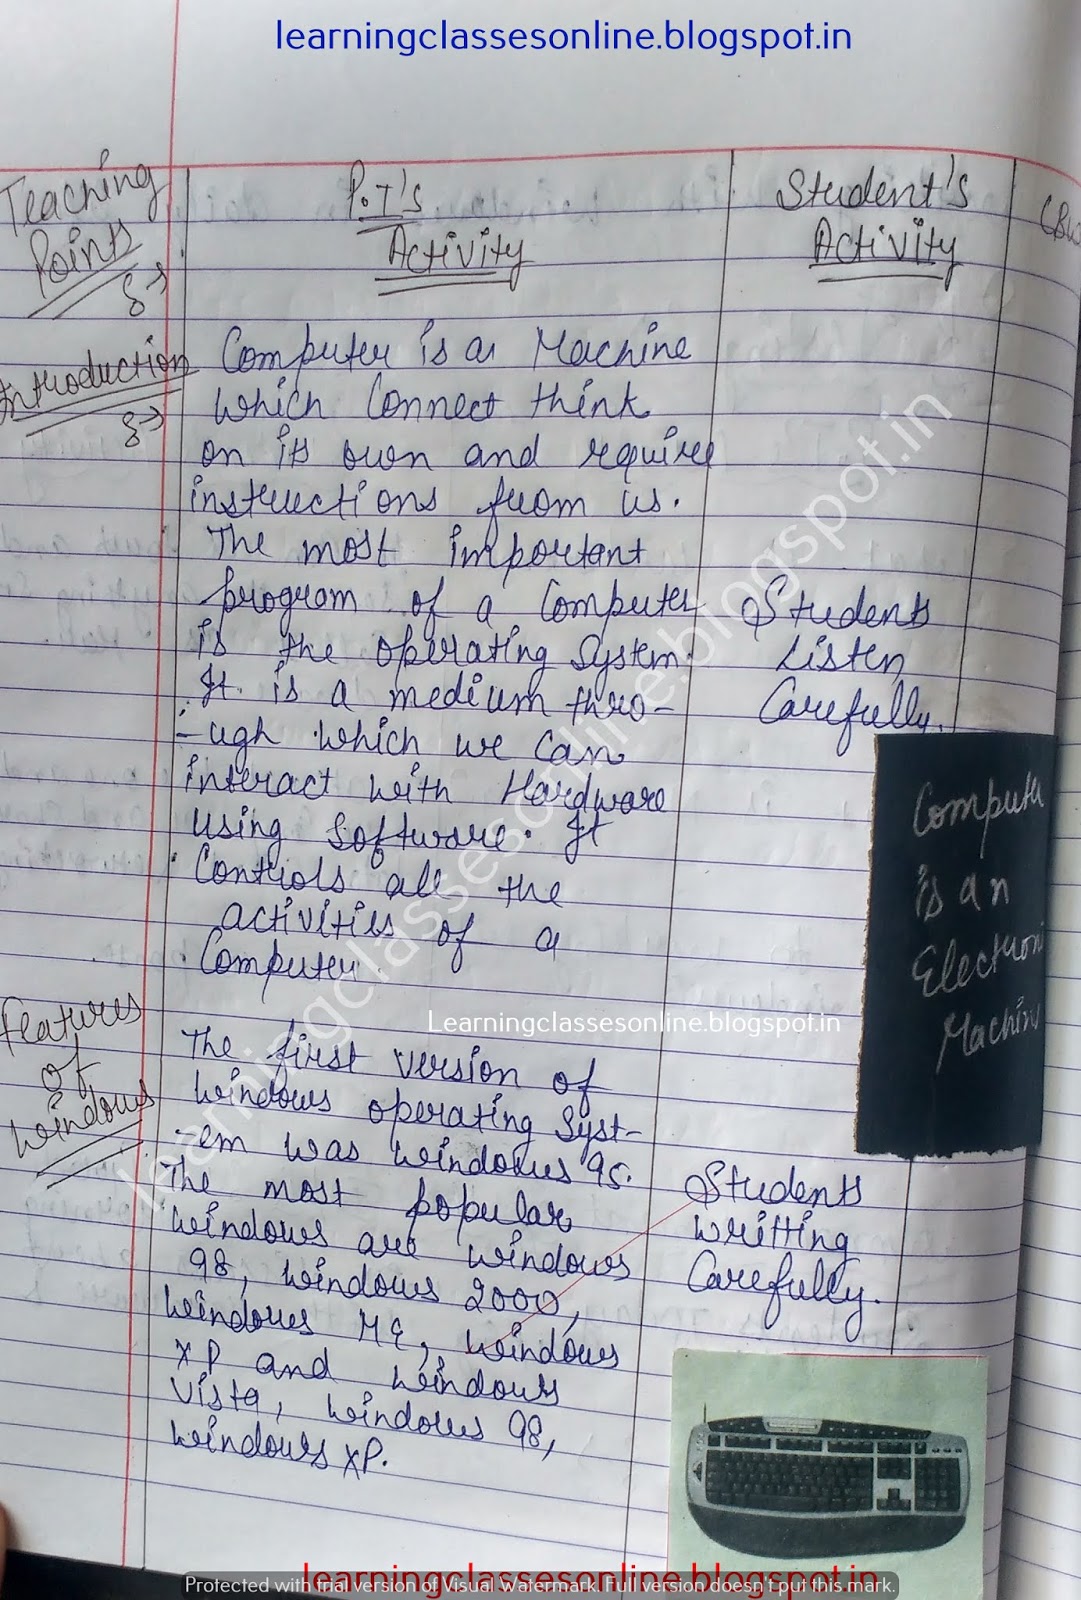 learningclassesonline.blogspot.in
Teaching
Points
P.T's
Activity
Student's
Activity
Introduction
Computer is a Machine
which Connect think
on its own and require
instructions from us.
The most important
program of a Computer
is the operating System.
It is a medium thro-
-ugh which we can
interact with Hardware
using Software. It
Controls all the
activities of a
Computer.
Students
Listen
Carefully.
Computer
is an
Electron
Machin
Features
of
windows
The first version of
windows operating Syst-
-em was windows 95.
The most popular
windows are windows
98, windows 2000,
windows ME, windows
XP and windows
Vista, windows 98,
windows XP.
Students
writting
Carefully.
learningclassesonline.blogspot.in
Learningclassesonline.blogspot.in
learningclassesonline.blogspot.in
Protected with trial version of Visual Watermark. Full version doesn't put this mark.